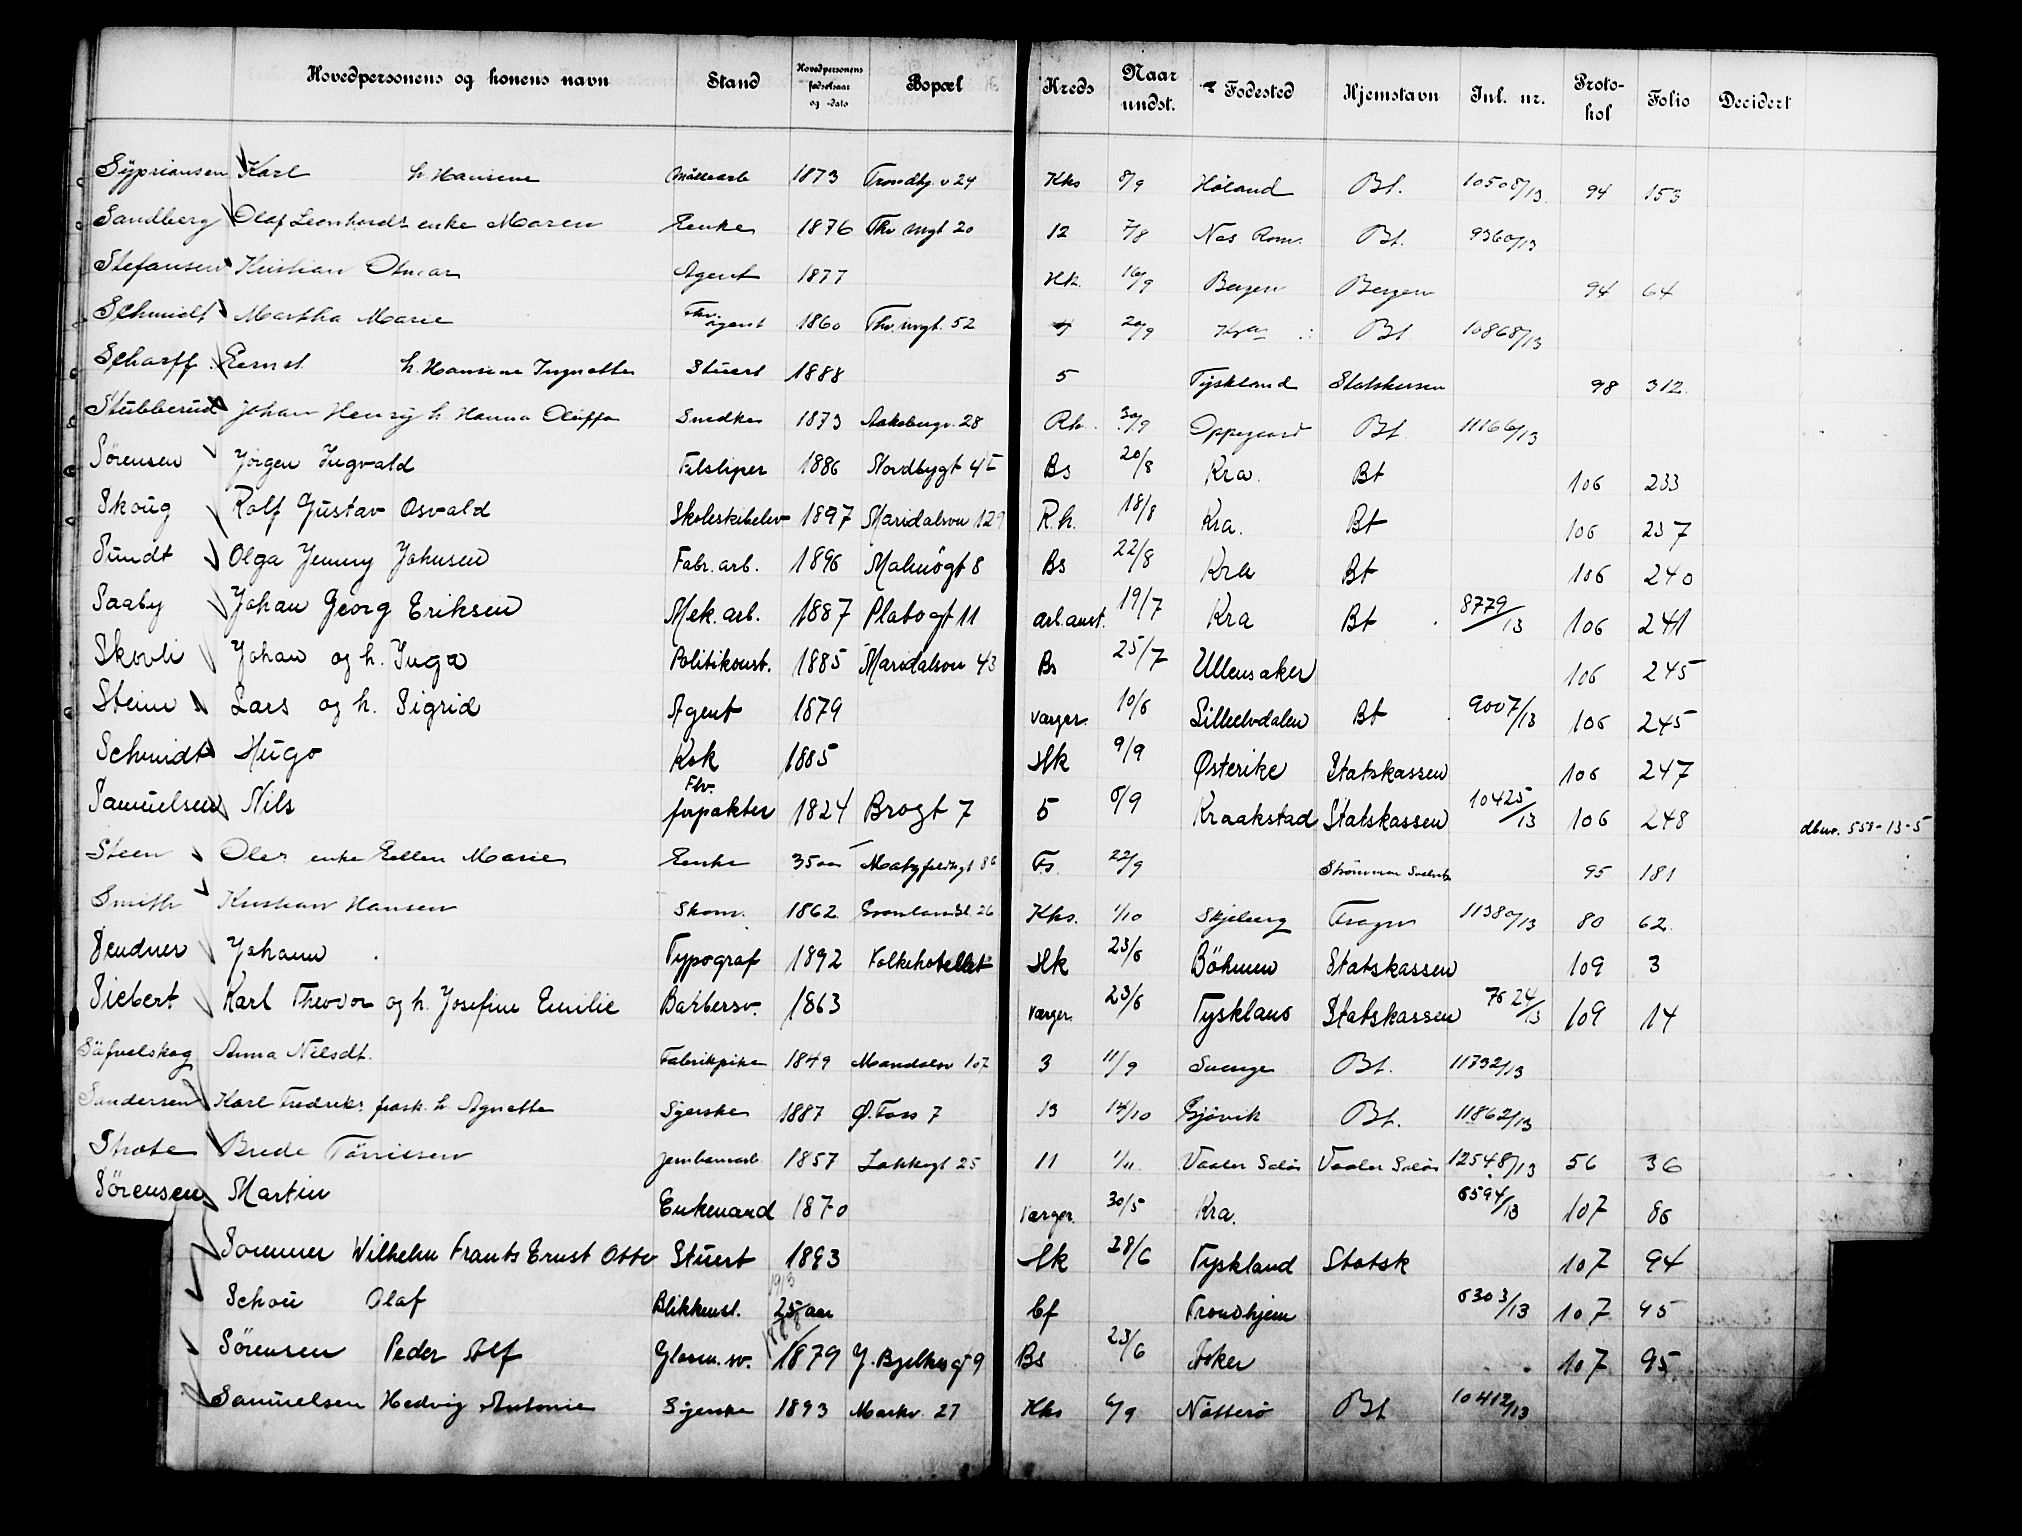 Hovedpersonens og konens navn Stand Hovedpersonens fødselsaar og -dato Bopæl Kreds Naar undst. Fødested Hjemstavn Inl. nr. Proto-kol Folio Decidert
Sypriansen Karl h. Hansine 1873 Trondhj. v 24 Khs 8/9 Høland Bt. 10508/13 94 153
Sandberg Olaf Leonhards enke Maren Enke 1876 Thv. mgt 20 12 7/8 Nes Rom. Bt. 9360/13
Stefansen Kristian Otmar Agent 1877 Hk. 16/9 Bergen Bergen 94 64
Schmidt Martha Marie Fhv. agent 1860 Thv. mgt. 52 4 20/9 Kra Bt 10868/13
Scharff Ernst h. Hansine Ingnette Stuert 1888 5 Tyskland Statskassen 98 312
Stubberud Johan Henry h. Hanna Oluffa Snedker 1873 Aakebergv. 28 Rh. 30/9 Oppegaard Bt. 11166/13
Sørensen Jørgen Ingvald Filsliper 1886 Nordbygt 45 Bs 20/8 Kra. Bt 106 233
Skoug Rolf Gustav Osvald Skoleskibelev 1897 Maridalsvn 129 R.h. 18/8 Kra. Bt 106 237
Sundt Olga Jenny Johnsen Fabr. arb. 1896 Malmøgt 8 Bs 22/8 Kra Bt 106 240
Saaby Johan Georg Eriksen Mek. arb. 1887 Platous gt 11 arb.anst. 19/7 Kra Bt 8779/13 106 241
Skovli Johan og h. Inga Politikonst. 1885 Maridalsvn 43 Bs 25/7 Ullensaker 106 245
Steine Lars og h. Sigrid Agent 1879 Værger. 10/6 Lilleelvdalen Bt 9007/13 106 245
Schmidt Hugo Kok 1885 Hk 9/9 Østerike Statskassen 106 247
Samuelsen Nils Fhv. forpakter 1824 Brogt 7 5 6/9 Kraakstad Statskassen 10425/13 106 248 dbno. 558-13-5
Steen Oles enke Ellen Marie Enke 35 aar Fs. 22/9 Strømmen 95 181
Smith Kristian Hansen Skom. 1862 Grønlandsl. 26 Khs. 1/10 Skjeberg Frogn 11380/13 80 62
Sendner Johann Typograf 1892 Folkehotellet Hk 23/6 Böhmen Statskassen 109 3
Siebert Karl Theodor og h. Josefine Emilie Barbersv. 1863 Værger. 23/6 Tyskland Statskassen 7624/13 109 14
Säfvelskog Anna Nilsdt. Fabrikpike 1849 107 3 11/9 Sverige Bt. 11732/13
Sandersen Karl Fredriks frask. h. Agnette Syerske 1887 Ø. Foss 7 13 14/10 Gjøvik Bt. 11862/13
Strøte Brede Tønnesen Jernbanearb. 1857 Lakkegt 25 11 1/11 Vaaler Solør Vaaler Solør 12548/13 56 36
Sørensen Martin Enkemand 1870 Værger. 30/5 Kra. 6594/13 107 86
Sommer Wilhelm Frants Ernst Otto Stuert 1893 Hk 28/6 Tyskland Statsk 107 94
Schou Olaf Blikkensl. 25 aar 1913 1888 Cf Trondhjem 6303/13 107 95
Sørensen Peder Alf Glasm. sv. 1879 J. Bjelkes gt 9 Bs 23/6 Aker 107 95
Samuelsen Hedvig Antonie Syerske 1893 Markv. 27 Khs 6/9 Nötterö Bt 10412/13